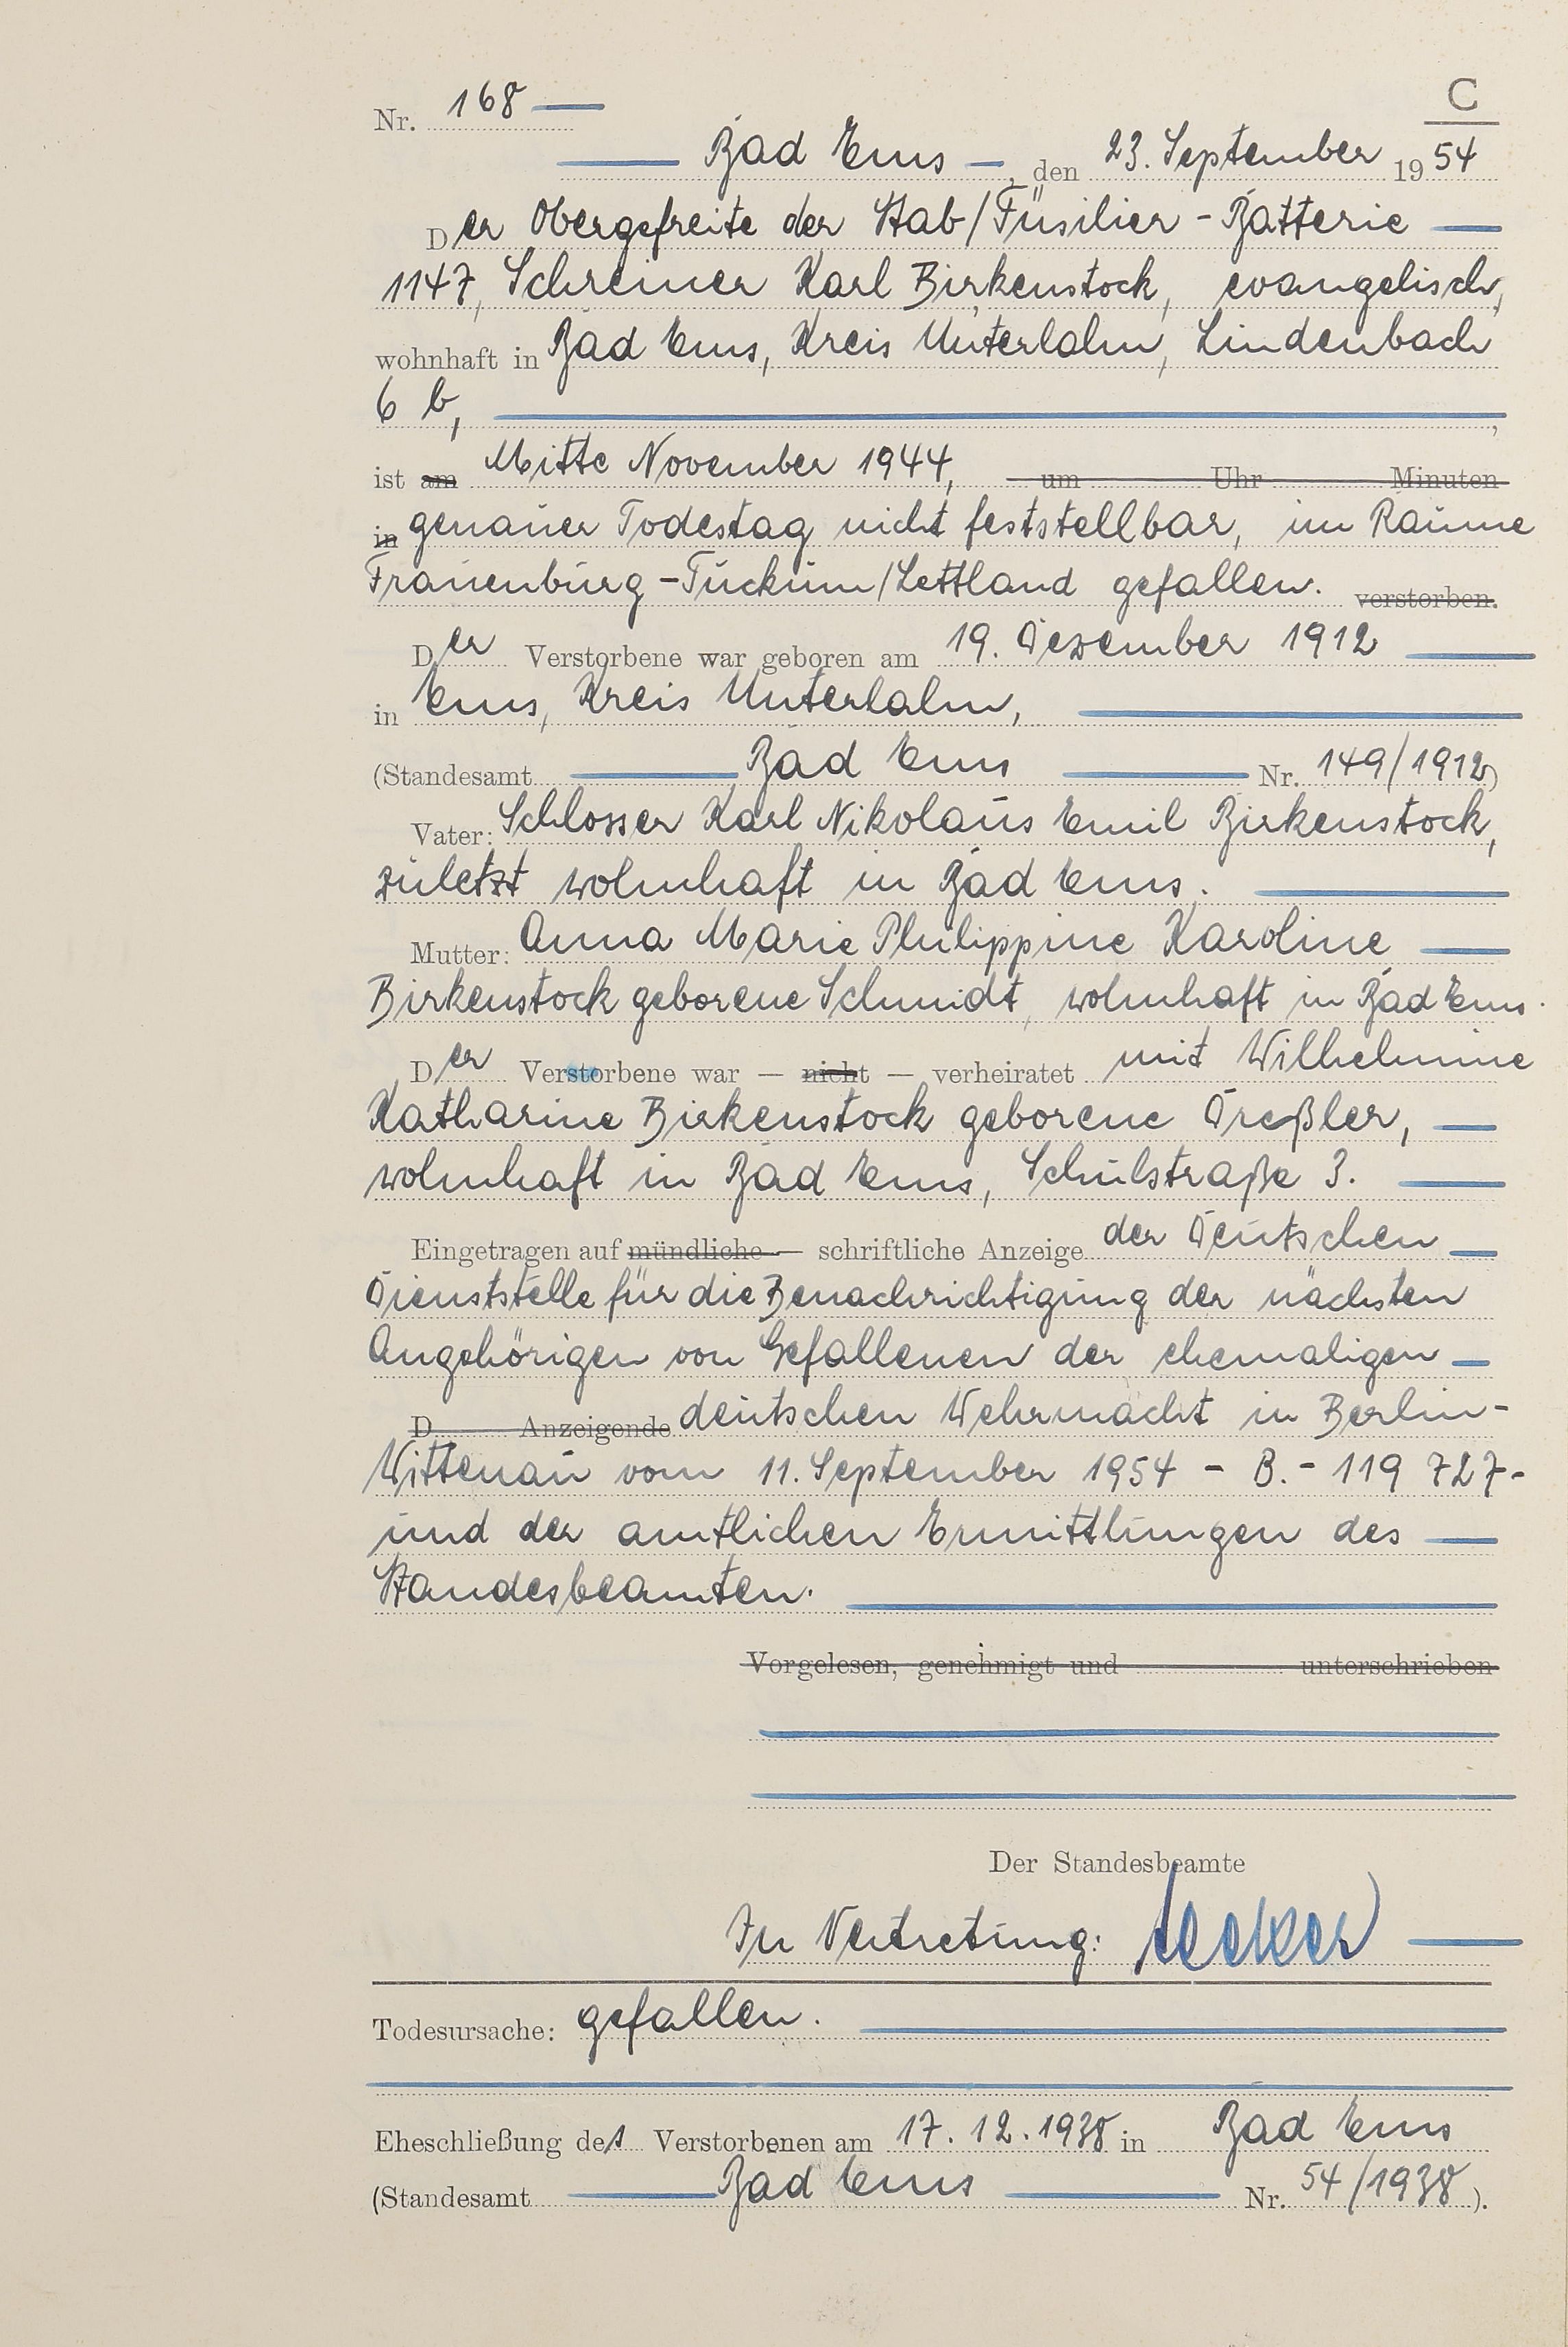 C
Nr. 168
Bad Ems, den 23. September 1954
Der Obergefreite der Stab/Füsilier-Batterie
1147, Schreiner Karl Birkenstock, evangelisch,
wohnhaft in Bad Ems, Kreis Unterlahn, Lindenbach
6 b, ,
ist am Mitte November 1944, um Uhr Minuten
in genauer Todestag nicht feststellbar, im Raume
Frauenburg-Tuckum/Lettland gefallen. verstorben.
Der Verstorbene war geboren am 19. Dezember 1912
in Ems, Kreis Unterlahn,
(Standesamt Bad Ems Nr. 149/1912)
Vater: Schlosser Karl Nikolaus Emil Birkenstock,
zuletzt wohnhaft in Bad Ems.
Mutter: Anna Marie Philippine Karoline
Birkenstock geborene Schmidt, wohnhaft in Bad Ems.
Der Verstorbene war — nicht — verheiratet mit Wilhelmine
Katharine Birkenstock geborene Dreßler,
wohnhaft in Bad Ems, Schulstraße 3.
Eingetragen auf mündliche — schriftliche Anzeige der Deutschen
Dienststelle für die Benachrichtigung der nächsten
Angehörigen von Gefallenen der ehemaligen
D Anzeigende deutschen Wehrmacht in Berlin-
Wittenau vom 11. September 1954 - B. - 119 727-
und der amtlichen Ermittlungen des
Standesbeamten.
Vorgelesen, genehmigt und unterschrieben
Der Standesbeamte
In Vertretung:
Todesursache: gefallen.
Eheschließung des Verstorbenen am 17. 12. 1938 in Bad Ems
(Standesamt Bad Ems Nr. 54/1938).